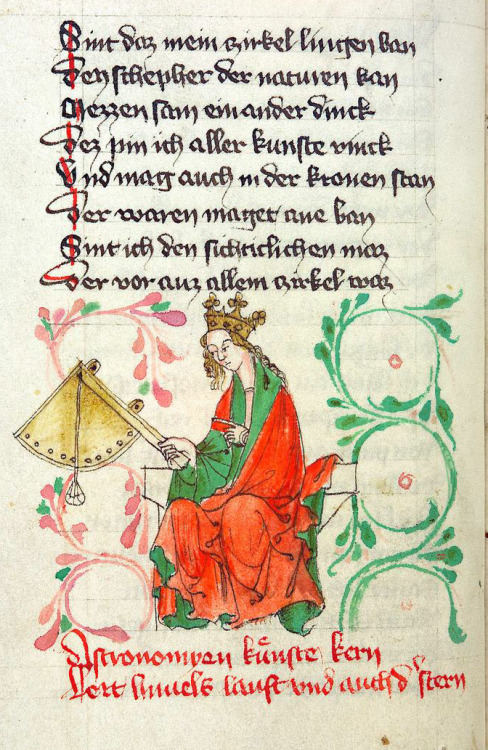 Sint daz mein czirkel lingen ban
Den schepher der naturen kan
Mezzen sam ein ander dinck
Dez pin ich aller kunste rinck
Vnd mag auch in der kronen stan
Der waren maget ane ban
Sint ich den sichticlichen maz
Der vor auz allem czirkel waz
Astronomyen kuͤnste kern
Lert himels lauft vnd auch d' stern